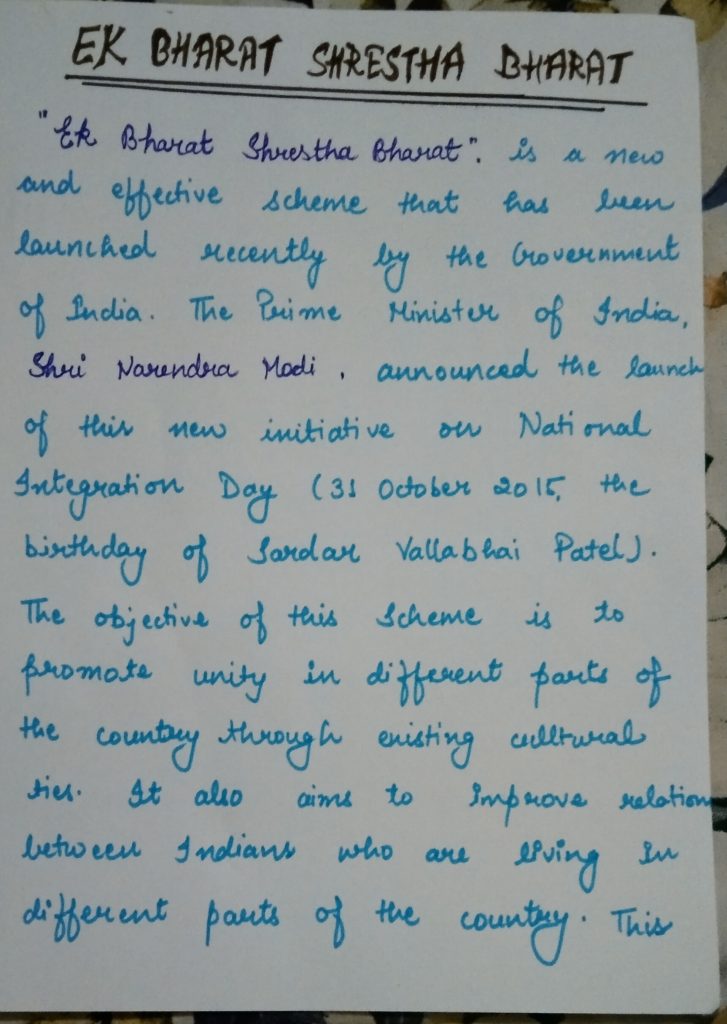 EK BHARAT SHRESTHA BHARAT
"Ek Bharat Shrestha Bharat". is a new
and effective scheme that has been
launched recently by the Government
of India. The Prime Minister of India,
Shri Narendra Modi, announced the launch
of this new initiative on National
Integration Day (31 October 2015, the
birthday of Sardar Vallabhai Patel).
The objective of this Scheme is to
promote unity in different parts of
the country through existing culltural
ties. It also aims to Improve relation
between Indians who are living In
different parts of the country. This